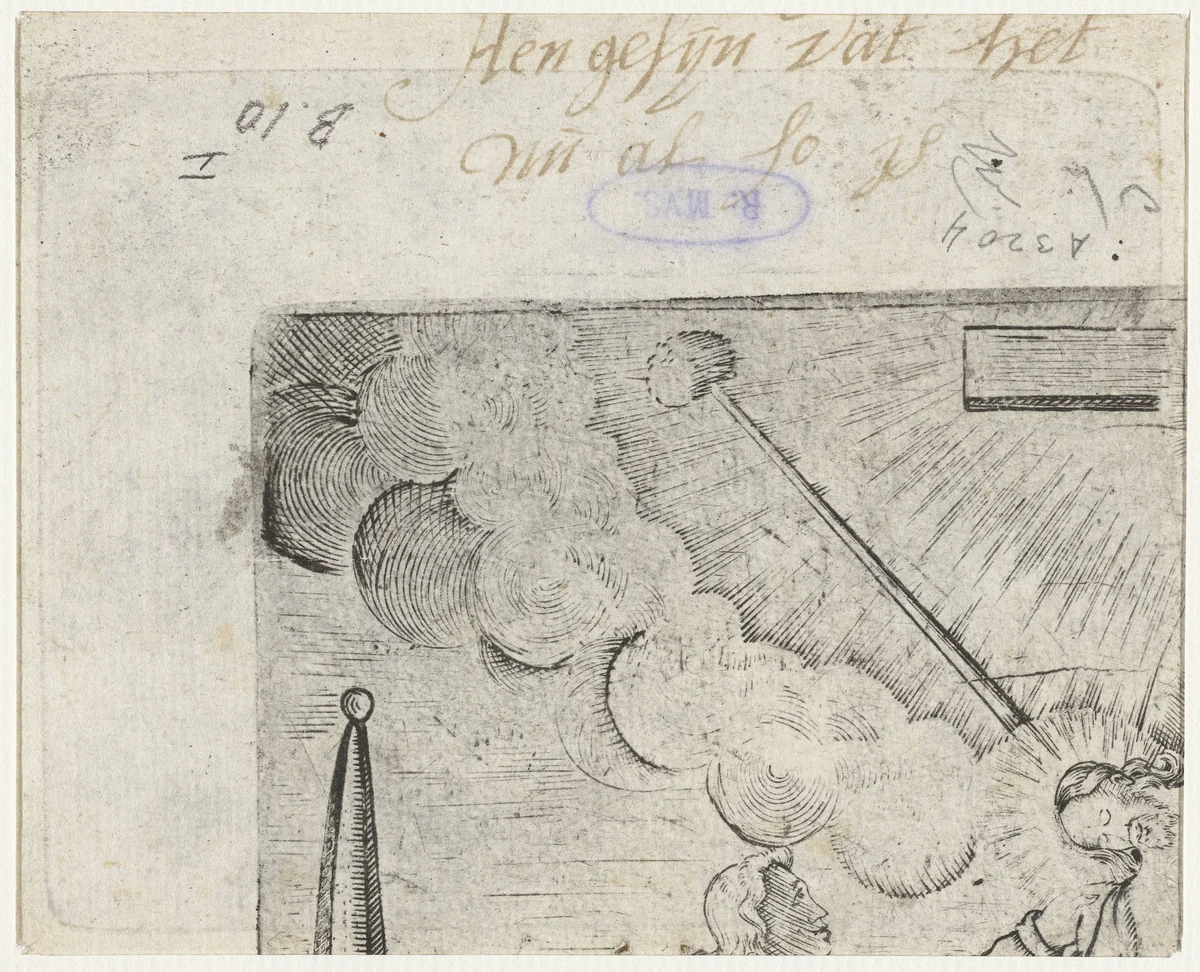 Hen gesijn dat het
nu al so je
B.10
I
R. MVS.
A3204